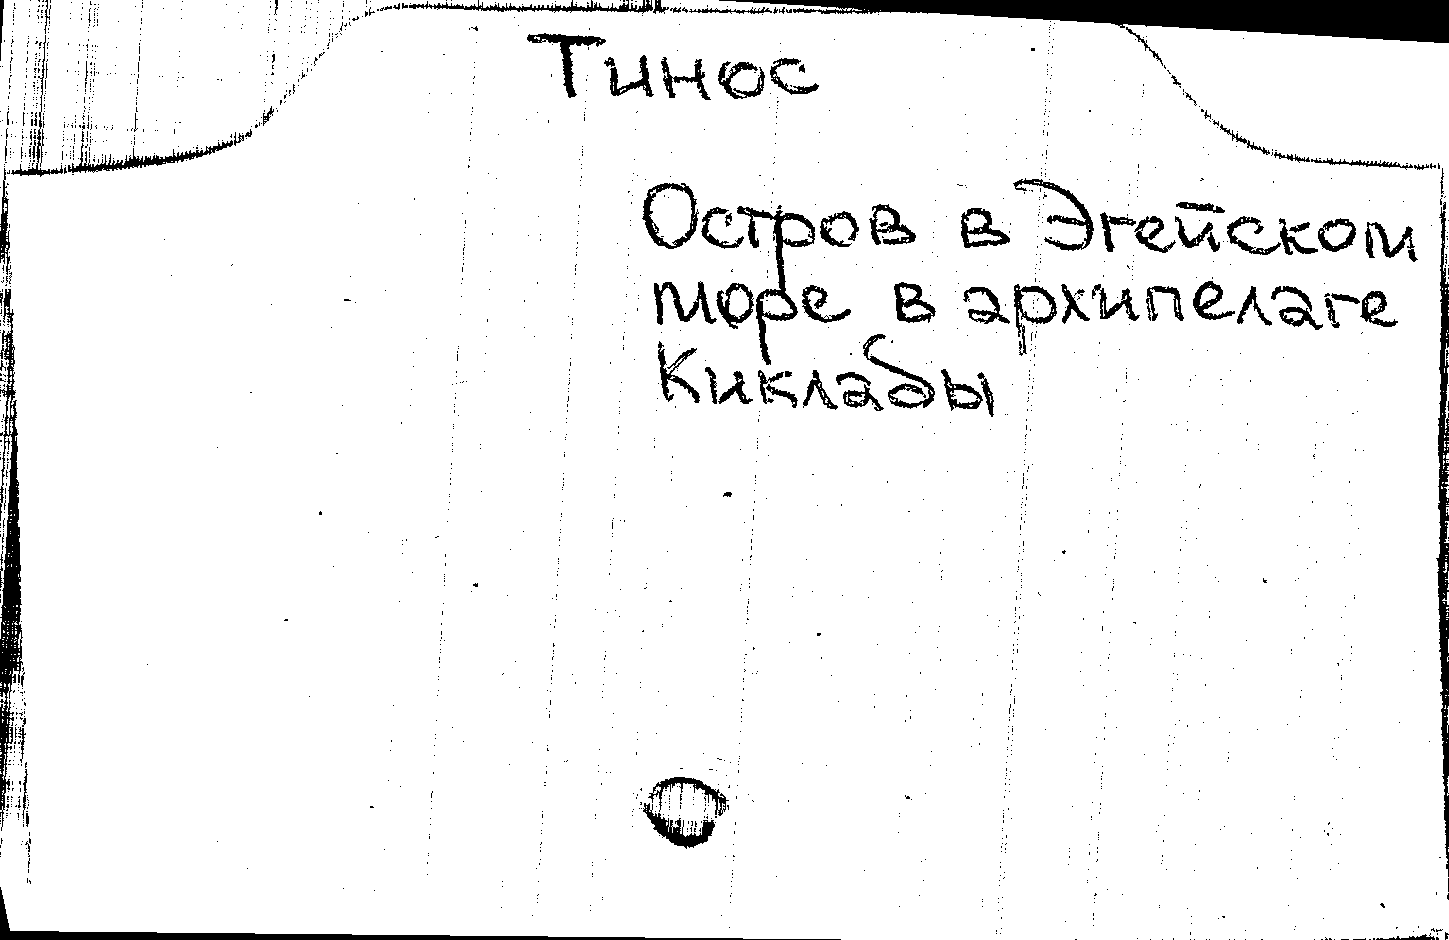 Тинос
Остров в Эгейском
море в архипелаге
Киклады